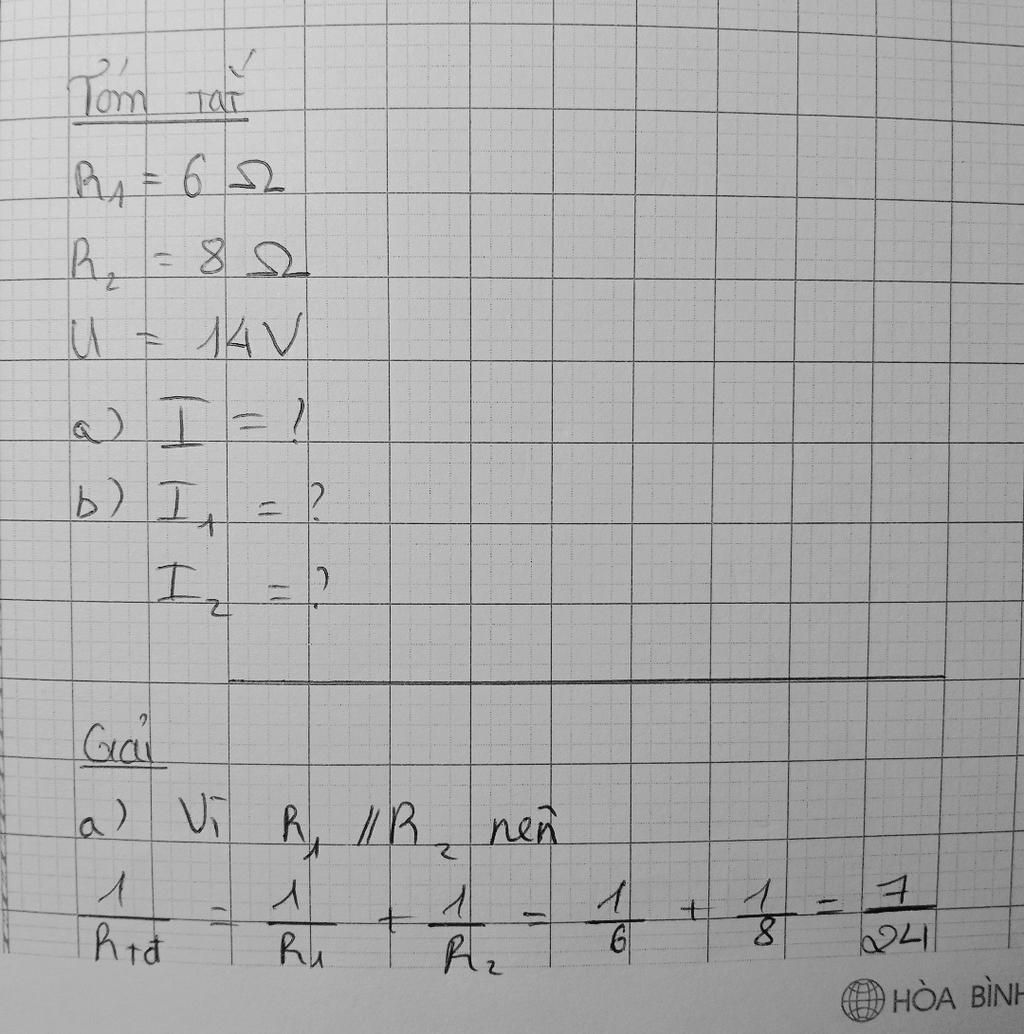 Tóm tắt
R₁ = 6 Ω
R₂ = 8 Ω
U = 14V
a) I = ?
b) I₁ = ?
I₂ = ?
Giải
a) Vì R₁ // R₂ nên
1/Rtđ = 1/R₁ + 1/R₂ = 1/6 + 1/8 = 7/24
HÒA BÌNH